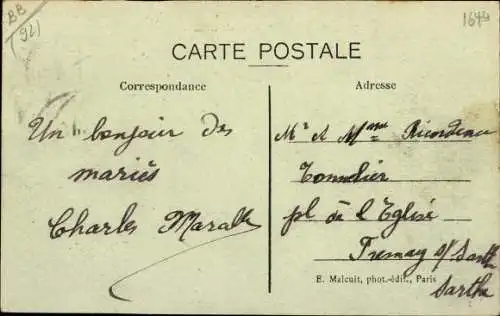 BB
(92)
164
CARTE POSTALE
Correspondance
Adresse
Un bonjour des
mariés
Charles
Mr & Mme Ricordeau
Tonnelier
pl de l'Eglise
s/ Sarthe
Sarthe
E. Malcuit, phot.-édit., Paris